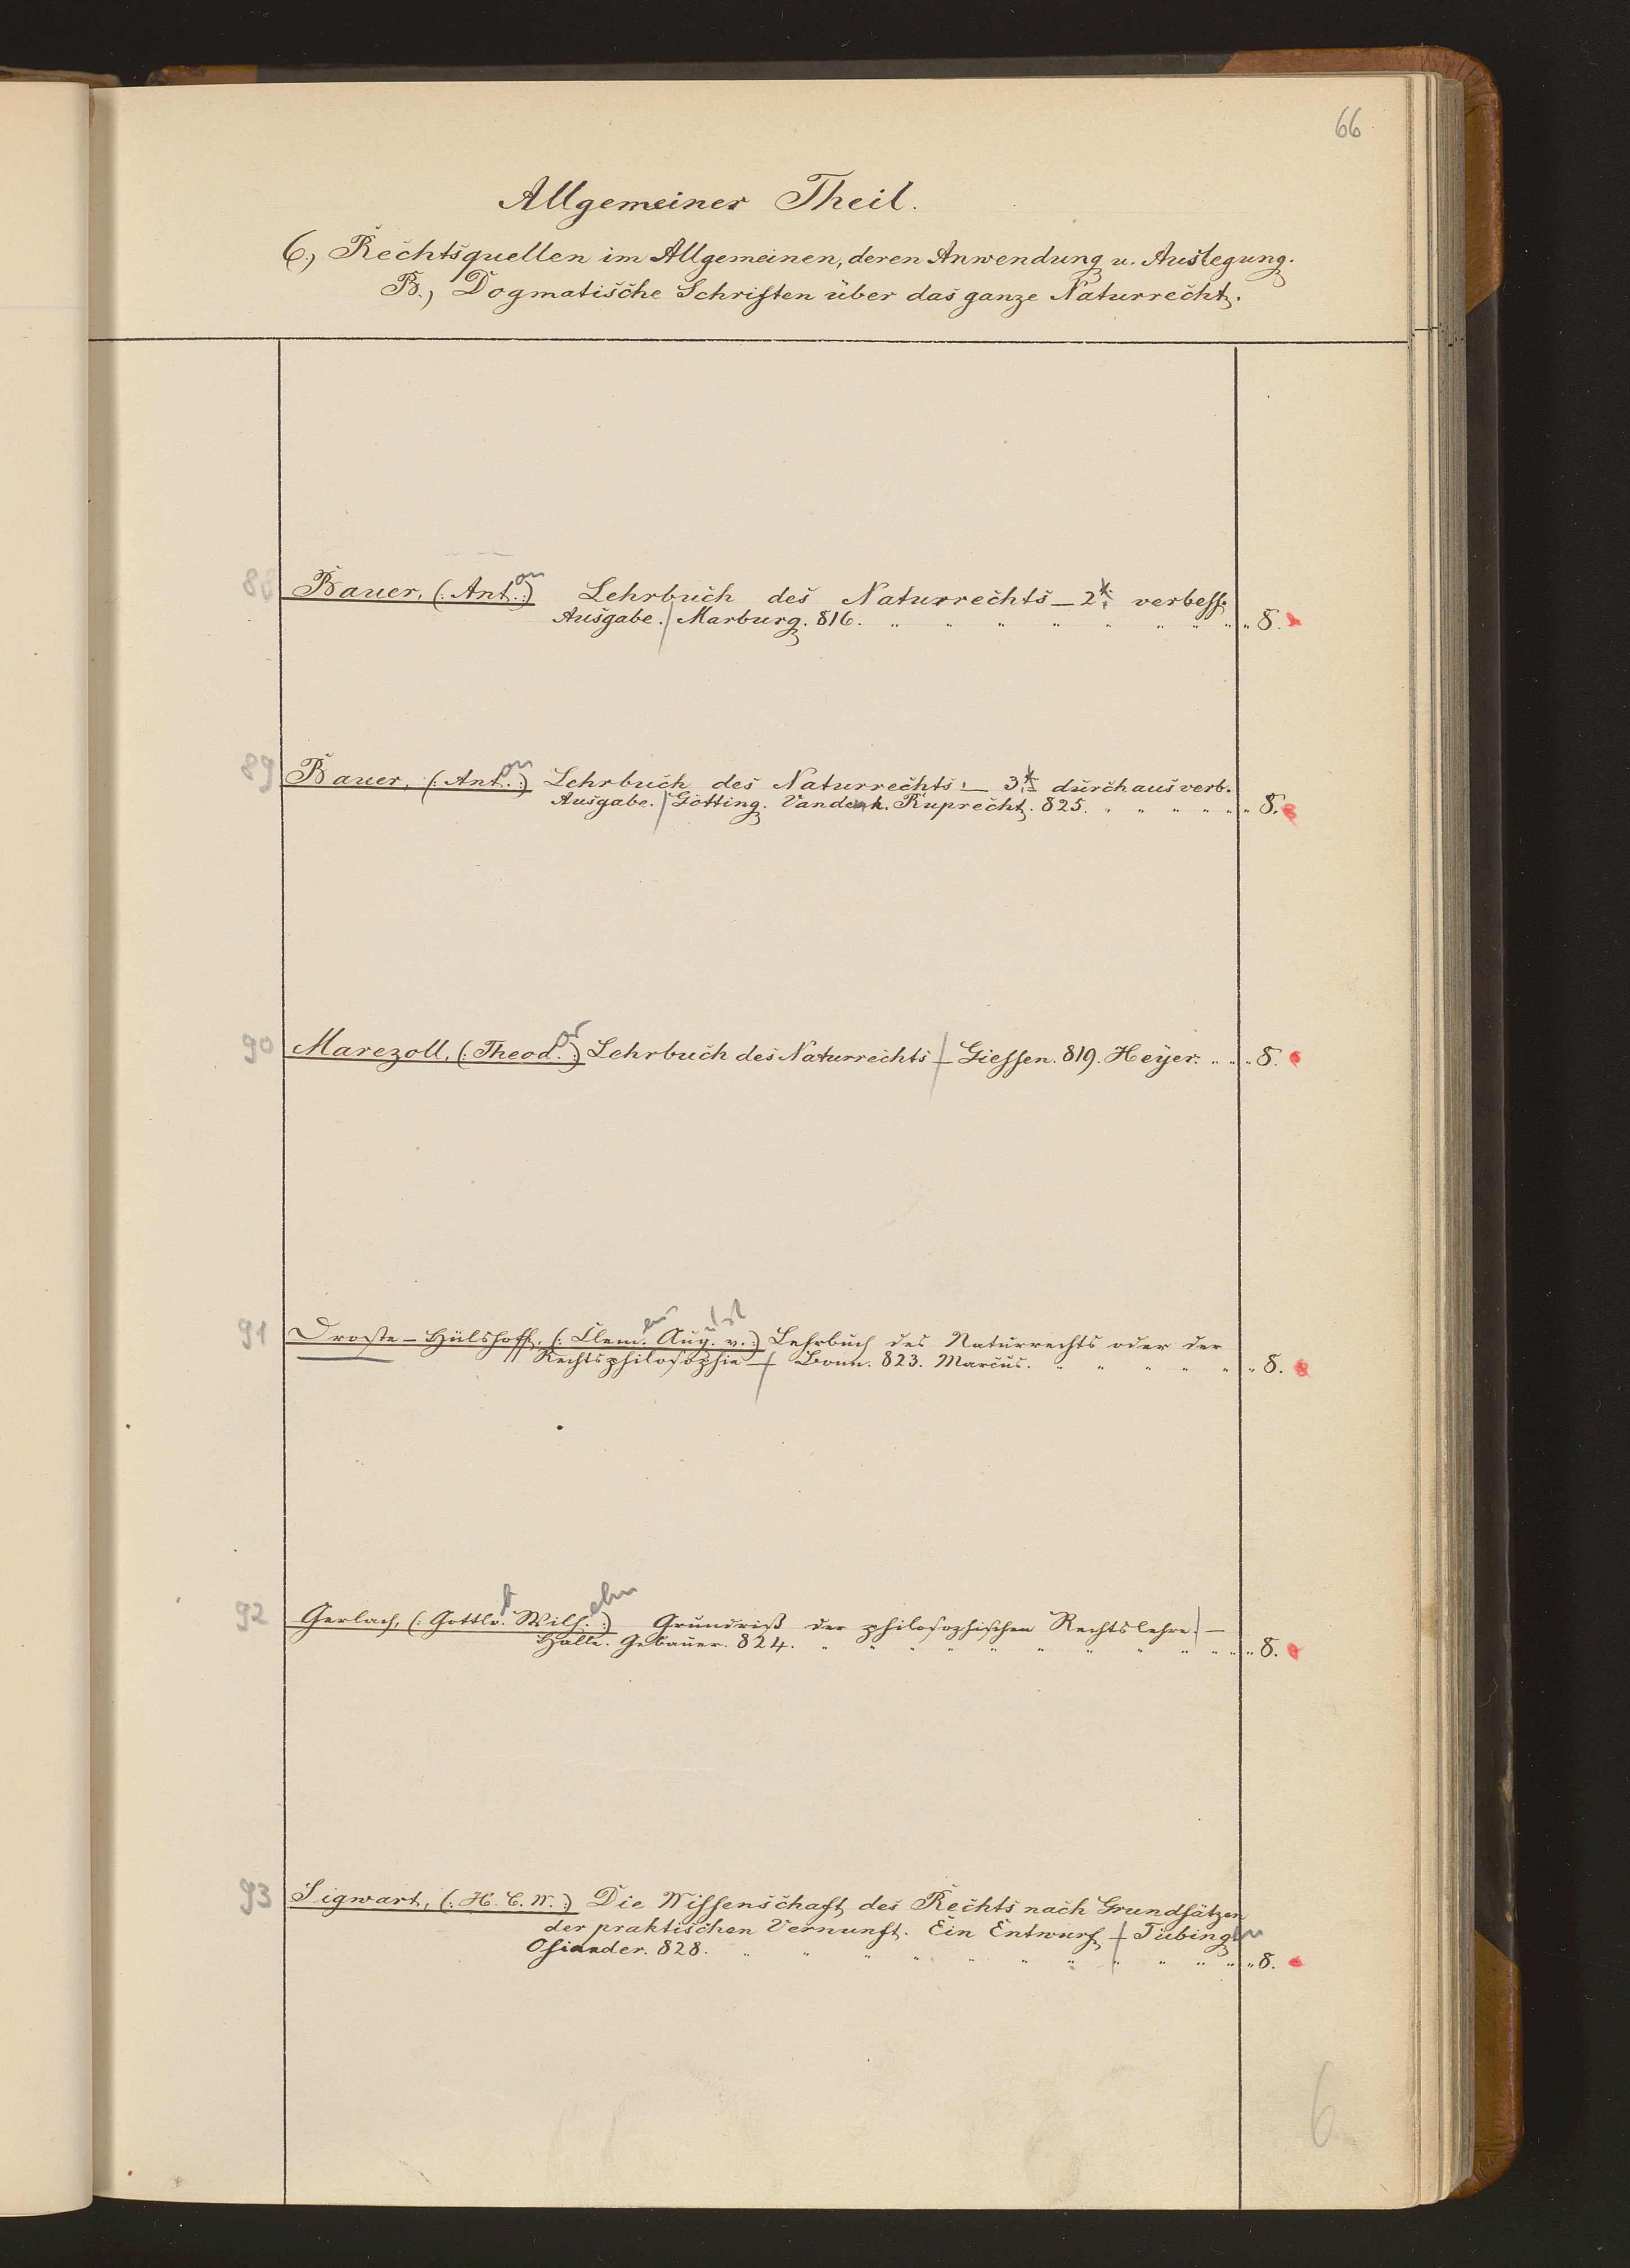 66
Allgemeiner Theil.
6., Rechtsquellen im Allgemeinen, deren Anwendung u. Auslegung.
B., Dogmatische Schriften über das ganze Naturrecht.
88 Bauer, (: Anton :) Lehrbuch des Naturrechts – 2t. verbess.
Ausgabe. / Marburg. 816. " " " " " " " " 8.
89 Bauer, (: Anton :) Lehrbuch des Naturrechts: – 3t. durchaus verb.
Ausgabe. / Götting. Vandenk. Ruprecht. 825. " " " " " " 8.
90 Marezoll, (: Theodor :) Lehrbuch des Naturrechts / – Giessen. 819. Heyer. " " " 8.
91 Droste-Hülshoff, (: Clemens August v. :) Lehrbuch des Naturrechts oder der
Rechtsphilosophie – / Bonn. 823. Marcus. " " " " " " 8.
92 Gerlach, (: Gottlob Wilhelm :) Grundriß der philosophischen Rechtslehre. / –
Halle. Gebauer. 824. " " " " " " " " " " " 8.
93 Sigwart, (: H. C. W. :) Die Wissenschaft des Rechts nach Grundsätzen
der praktischen Vernunft. Ein Entwurf – / Tübingen
Osiander. 828. " " " " " " " " " " " 8.
6